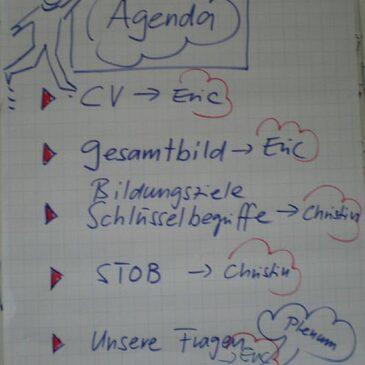 Agenda
CV → Eric
Gesamtbild → Eric
Bildungsziele
Schlüsselbegriffe → Christin
STOB → Christin
Unsere Fragen Plenum
→ Eric